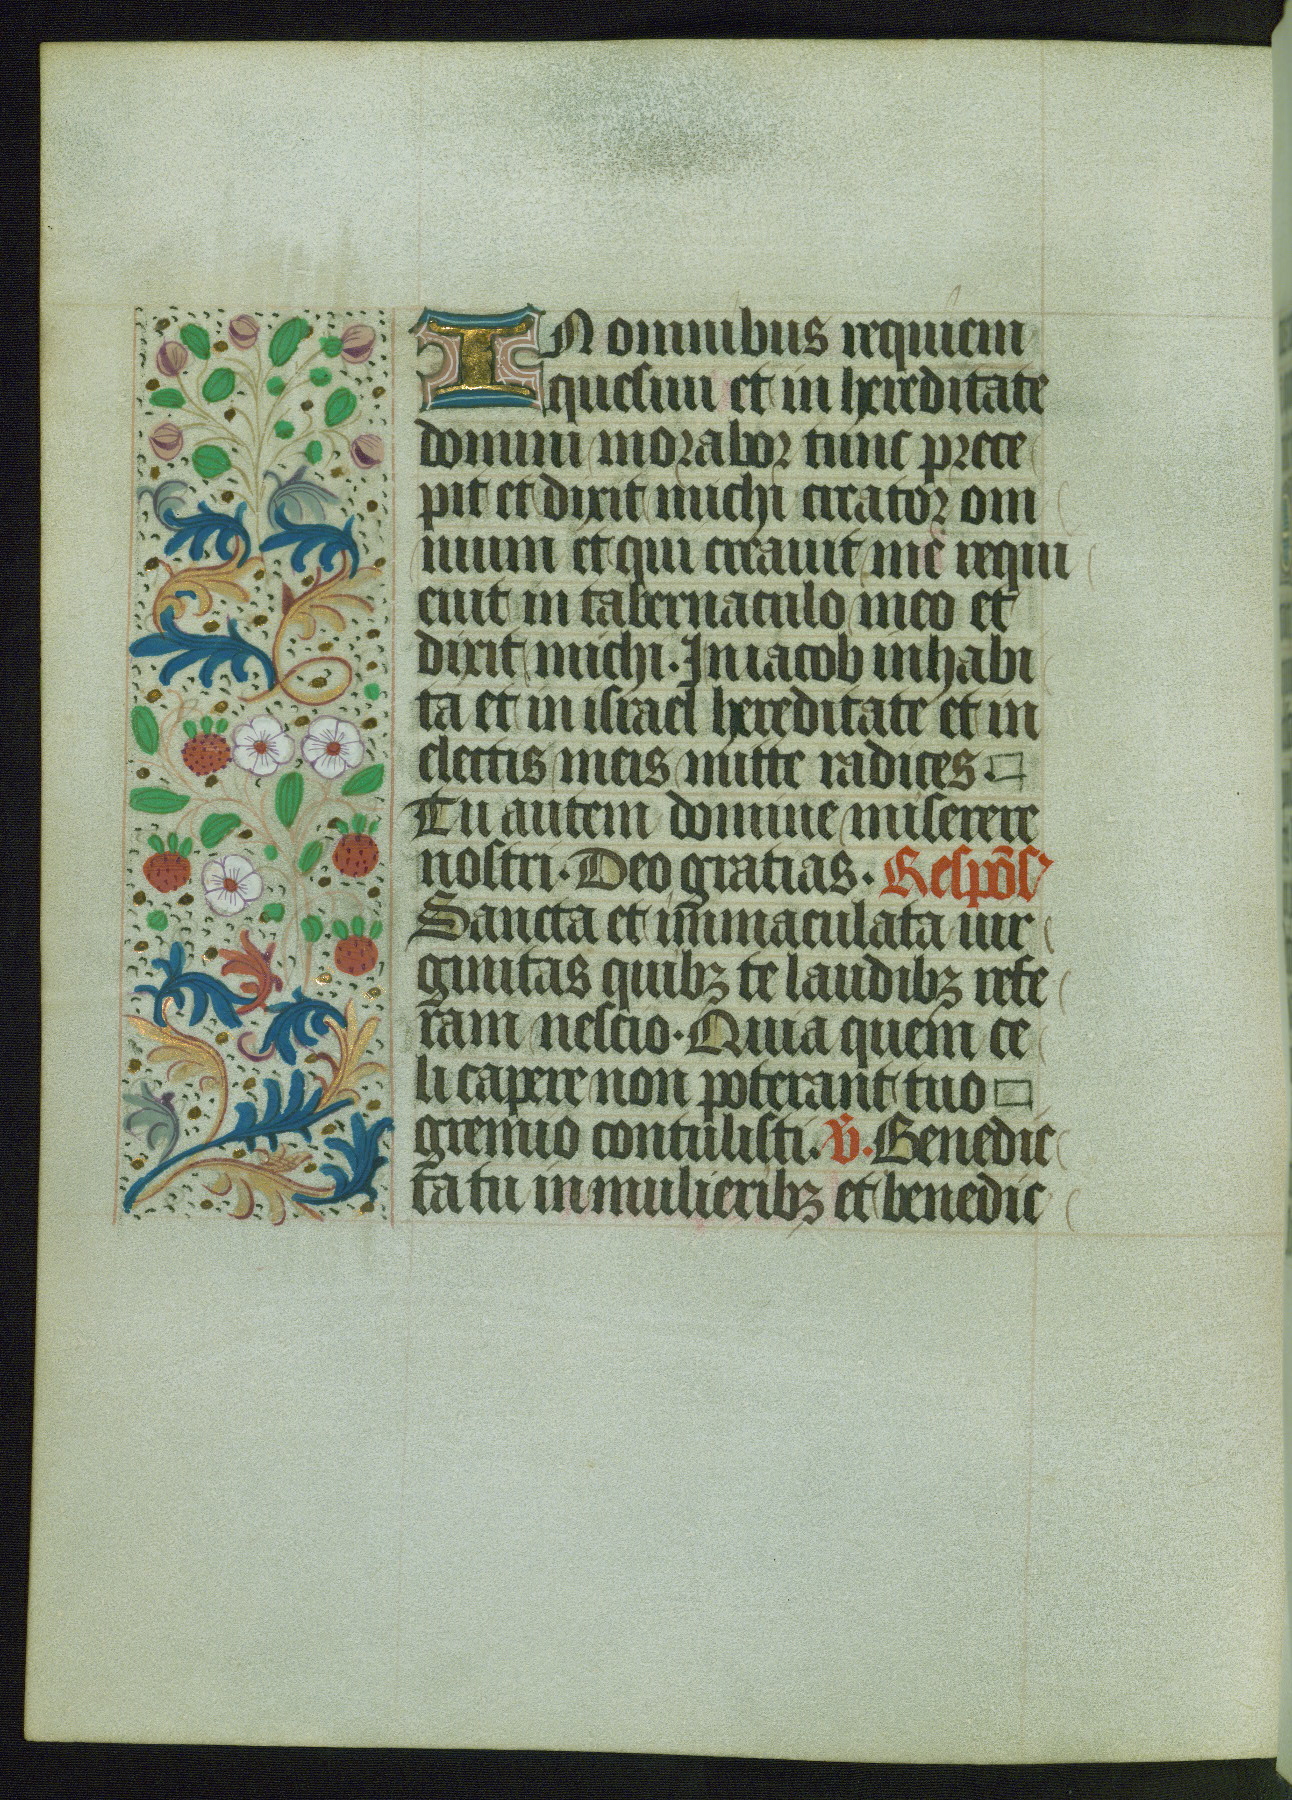 IN omnibus requiem
quesiui et in hereditate
domini morabor tunc prece
pit et dixit michi creator om
nium et qui creauit me requi
euit in tabernaculo meo et
dixit michi. In iacob inhabi
ta et in israel hereditate et in
electis meis mitte radices.
Tu autem domine miserere
nostri. Deo gratias. Respōs
Sancta et inmaculata uir
ginitas quibꝫ te laudibꝫ refe
ram nescio. Quia quem ce
li capere non poterant tuo
gremio contulisti. V̄. Benedic
ta tu in mulieribꝫ et benedic